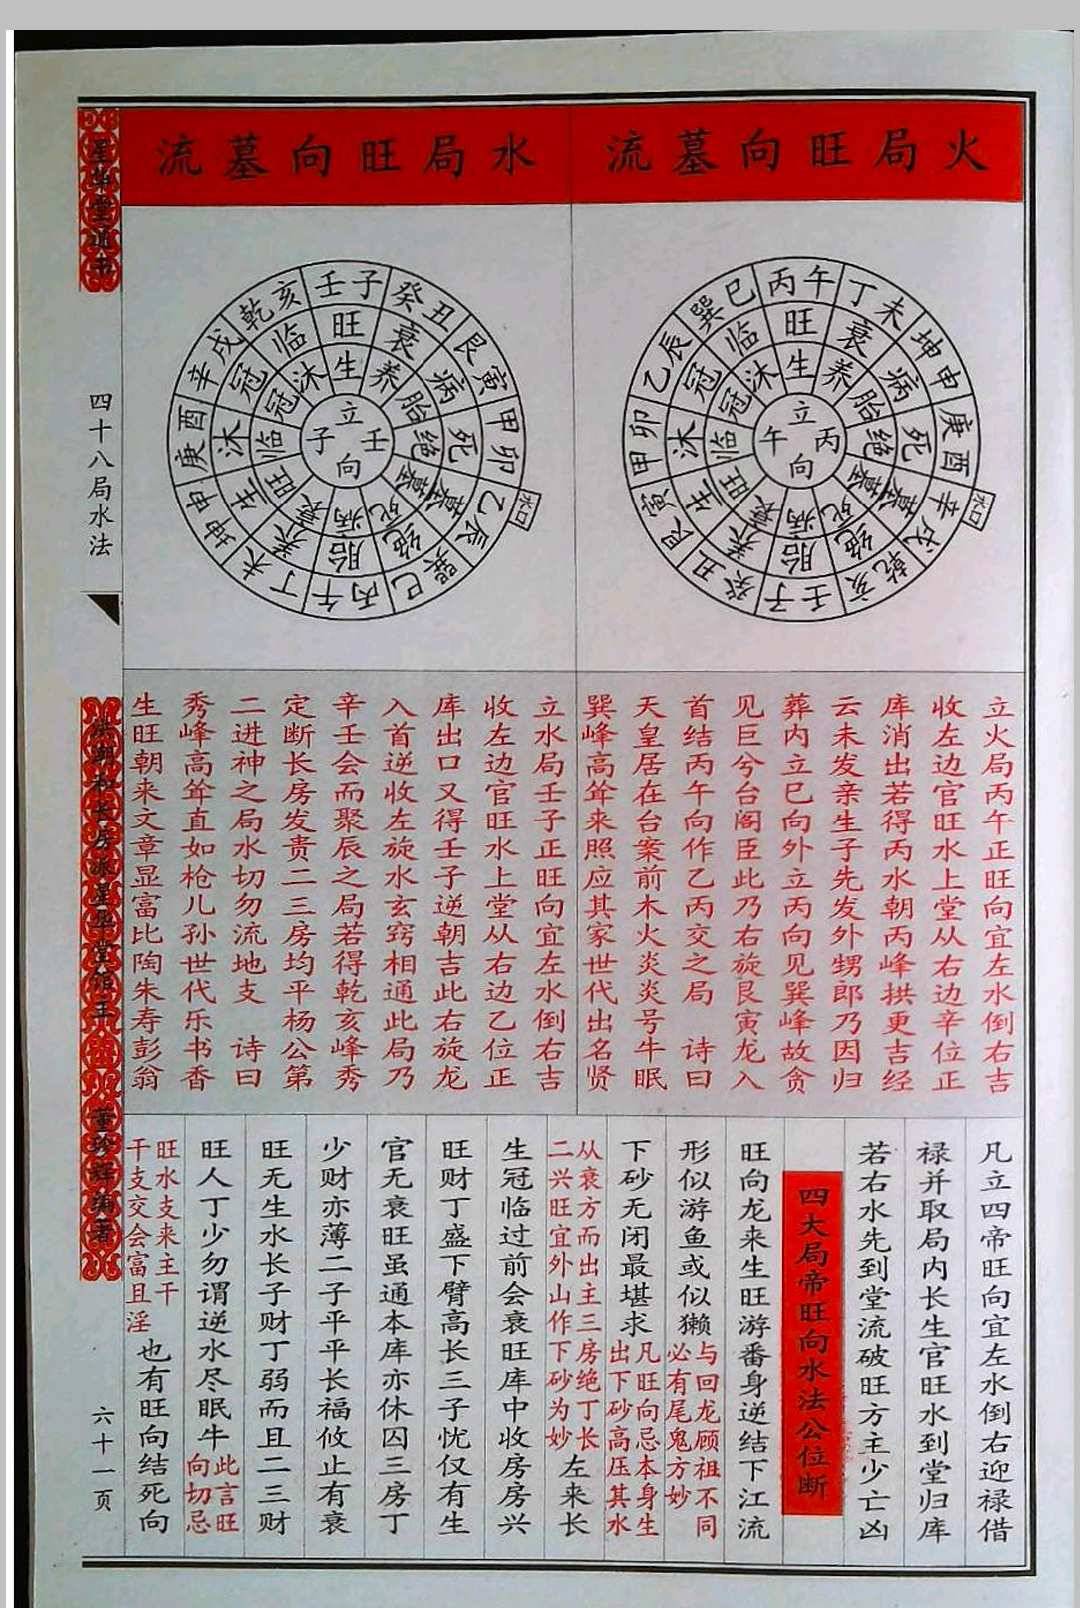 火局旺向墓流
丙午 丁未 坤申 庚酉 辛戌 乾亥 壬子 癸丑 艮寅 甲卯 乙辰 巽巳
旺 衰 病 死 墓 绝 胎 养 生 沐 冠 临
生 养 胎 绝 墓 死 病 衰 旺 临 冠 沐
立丙午向
水口
立火局丙午正旺向宜左水倒右吉
收左边官旺水上堂从右边辛位正
库消出若得丙水朝丙峰拱更吉经
云未发亲生子先发外甥郎乃因归
葬内立巳向外立丙向见巽峰故贪
见巨兮台阁臣此乃右旋艮寅龙入
首结丙午向作乙丙交之局 诗曰
天皇居在台案前木火炎炎号牛眠
巽峰高耸来照应其家世代出名贤
水局旺向墓流
壬子 癸丑 艮寅 甲卯 乙辰 巽巳 丙午 丁未 坤申 庚酉 辛戌 乾亥
旺 衰 病 死 墓 绝 胎 养 生 沐 冠 临
生 养 胎 绝 墓 死 病 衰 旺 临 冠 沐
立壬子向
水口
立水局壬子正旺向宜左水倒右吉
收左边官旺水上堂从右边乙位正
库出口又得壬子逆朝吉此右旋龙
入首逆收左旋水玄窍相通此局乃
辛壬会而聚辰之局若得乾亥峰秀
定断长房发贵二三房均平杨公第
二进神之局水切勿流地支 诗曰
秀峰高耸直如枪儿孙世代乐书香
生旺朝来文章显富比陶朱寿彭翁
凡立四帝旺向宜左水倒右迎禄借
禄并取局内长生官旺水到堂归库
若右水先到堂流破旺方主少亡凶
四大局帝旺向水法公位断
旺向龙来生旺游番身逆结下江流
形似游鱼或似獭
与回龙顾祖不同
必有尾鬼方妙
下砂无闭最堪求
凡旺向忌本身生
出下砂高压其水
从衰方而出主三房绝丁长
二兴旺宜外山作下砂为妙
左来长
生冠临过前会衰旺库中收房房兴
旺财丁盛下臂高长三子忧仅有生
官无衰旺虽通本库亦休囚三房丁
少财亦薄二子平平长福攸止有衰
旺无生水长子财丁弱而且二三财
旺人丁少勿谓逆水尽眠牛
此言旺
向切忌
旺水支来主干
干支交会富且淫
也有旺向结死向
星华堂通书
四十八局水法
洪潮和长房派星华堂馆主
董珍辉编著
六十一页